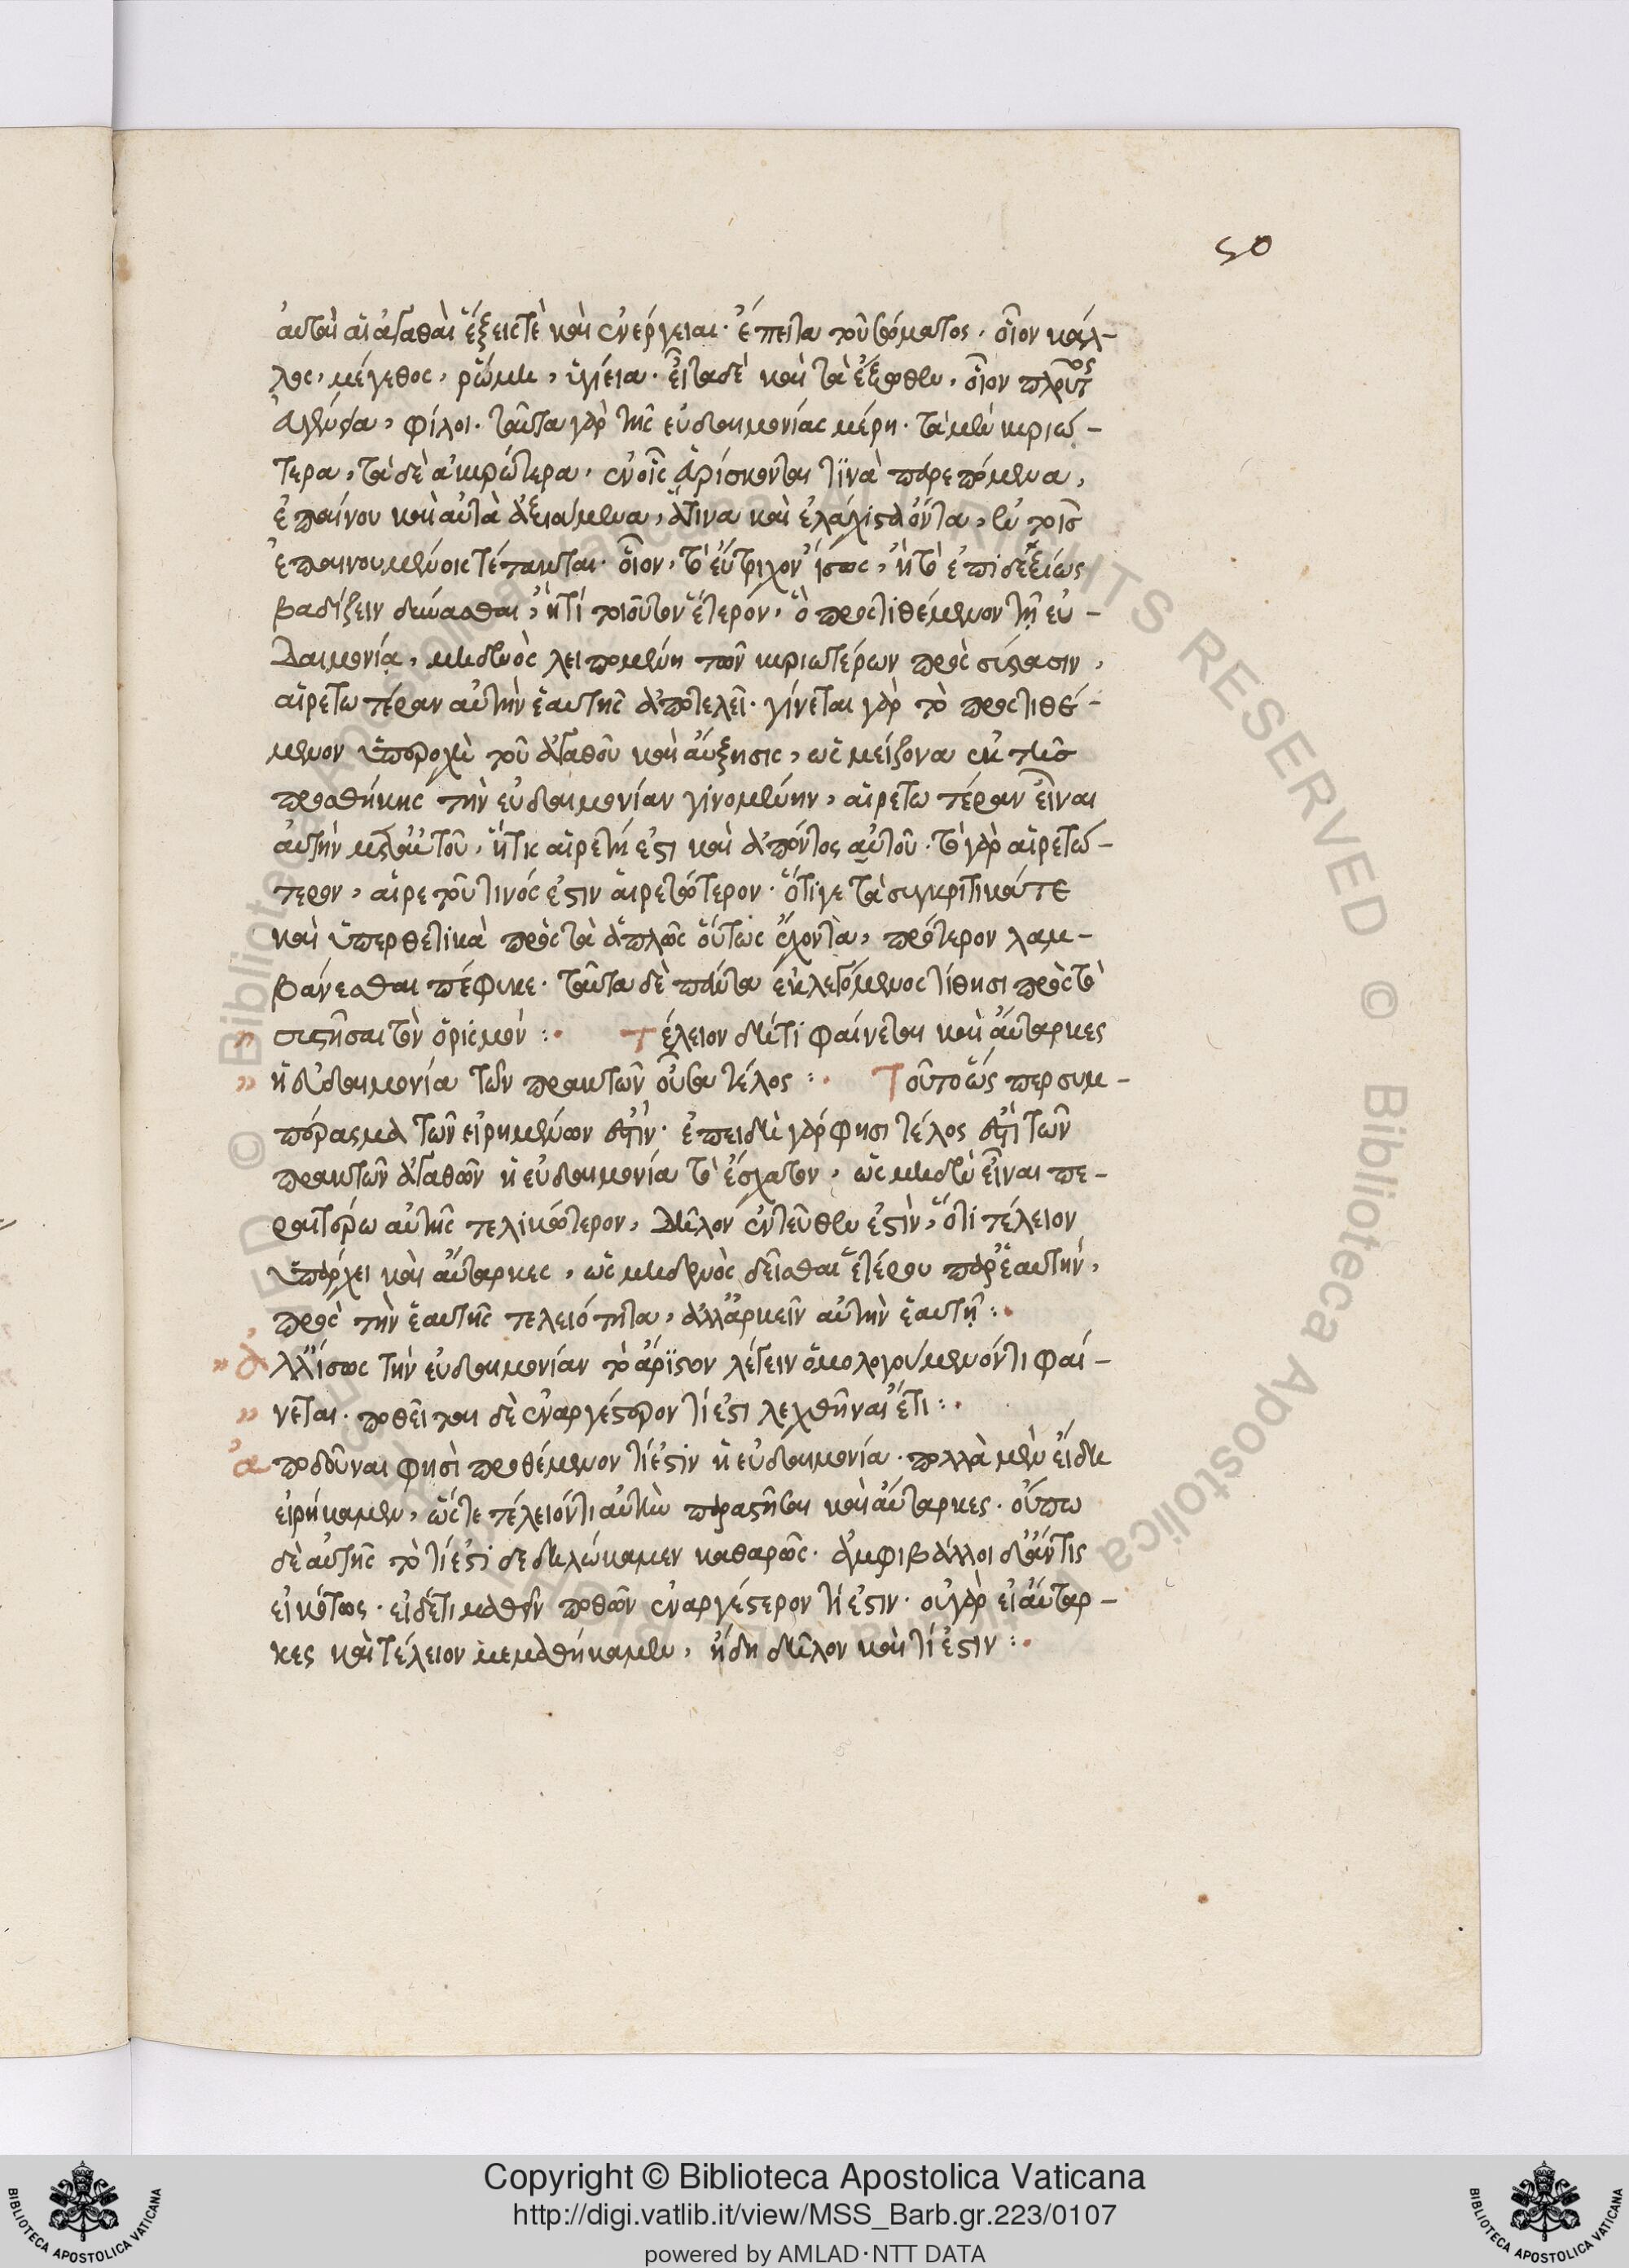 50
αὐταὶ αἱ ἀγαθαὶ ἕξεις τὲ καὶ ἐνέργειαι· ἔπειτα τοῦ σώματος· οἷον κάλ-
λος, μέγεθος, ῥώμη, ὑγίεια· εἶτα δὲ καὶ τὰ ἔξωθεν, οἷον πλοῦτος
εὐγένεια, φίλοι· ταῦτα γὰρ τῆς εὐδαιμονίας μέρη· τὰ μὲν κυριώ-
τερα, τὰ δὲ ἀκυρώτερα, ἐν οἷς εὑρίσκονται τινὰ παρεπόμενα,
ἐπαίνου καὶ αὐτὰ ἀξιούμενα, ἅτινα καὶ ἐλάχιστα ὄντα, ἐν τοῖς
ἐπαινουμένοις τέτακται· οἷον, τὸ εὔτριχον ἴσως, ἢ τὸ ἐπιδεξίως
βαδίζειν δύνασθαι, ἤ τι τοιοῦτον ἕτερόν, ὃ προστιθέμενον τῇ εὐ-
δαιμονίᾳ, μηδενὸς λειπομένῃ τῶν κυριωτέρων πρὸς σύστασιν,
αἱρετωτέραν αὐτὴν ἑαυτῆς ἀποτελεῖ· γίνεται γὰρ τὸ προστιθέ-
μενον ὑπεροχὴ τοῦ ἀγαθοῦ καὶ αὔξησις, ὡς μείζονα ἐκ τῆς
προσθήκης τὴν εὐδαιμονίαν γινομένην, αἱρετωτέραν εἶναι
αὐτὴν μετ' αὐτοῦ, ἥτις αἱρετή ἐστι καὶ ἀπόντος αὐτοῦ· τὸ γὰρ αἱρετώ-
τερον, αἱρετοῦ τινός ἐστιν αἱρετώτερον· ὅτι γε τὰ συγκριτικά τε
καὶ ὑπερθετικὰ πρὸς τὰ ἁπλῶς οὕτως ἔχοντα, πρότερον λαμ-
βάνεσθαι πέφυκε· ταῦτα δὲ πάντα ἐκλεγόμενος τίθησι πρὸς τὸ
συστῆσαι τὸν ὁρισμόν :· Τέλειον δή τι φαίνεται καὶ αὔταρκες
ἡ εὐδαιμονία τῶν πρακτῶν οὖσα τέλος :· Τοῦτο ὥσπερ συμ-
πέρασμα τῶν εἰρημένων ἐστίν· ἐπειδὴ γάρ φησι τέλος ἐστὶ τῶν
πρακτῶν ἀγαθῶν ἡ εὐδαιμονία τὸ ἔσχατον, ὡς μηδὲν εἶναι πε-
ραιτέρω αὐτῆς τελικώτερον, δῆλον ἐντεῦθεν ἐστὶν, ὅτι τέλειον
ὑπάρχει καὶ αὔταρκες, ὡς μηδενὸς δεῖσθαι ἑτέρου παρ' ἑαυτήν,
πρὸς τὴν ἑαυτῆς τελειότητα, ἀλλ' ἀρκεῖν αὐτὴν ἑαυτῇ :·
ἀλλ' ἴσως τὴν εὐδαιμονίαν τὸ ἄριστον λέγειν ὁμολογούμενόν τι φαί-
νεται· ποθεῖται δὲ ἐναργέστερον τί ἐστι λεχθῆναι ἔτι :·
ἀποδοῦναι φησὶ προθέμενον τί ἐστὶν ἡ εὐδαιμονία· πολλὰ μὲν εἴδη
εἰρήκαμεν, ὥστε τέλειόν τι αὐτὴν παραστῆναι καὶ αὔταρκες· οὔπω
δὲ αὐτῆς τὸ τί ἐστὶ δεδηλώκαμεν καθαρῶς· ἀμφιβάλλοι δ' ἄν τις
εἰκότως· εἰ δ' ἔτι μαθεῖν ποθῶν ἐναργέστερον τί ἐστιν· οὐ γὰρ εἰ αὔταρ-
κες καὶ τέλειον μεμαθήκαμεν, ἤδη δῆλον καὶ τί ἐστιν :·
Copyright © Biblioteca Apostolica Vaticana
http://digi.vatlib.it/view/MSS_Barb.gr.223/0107
powered by AMLAD·NTT DATA